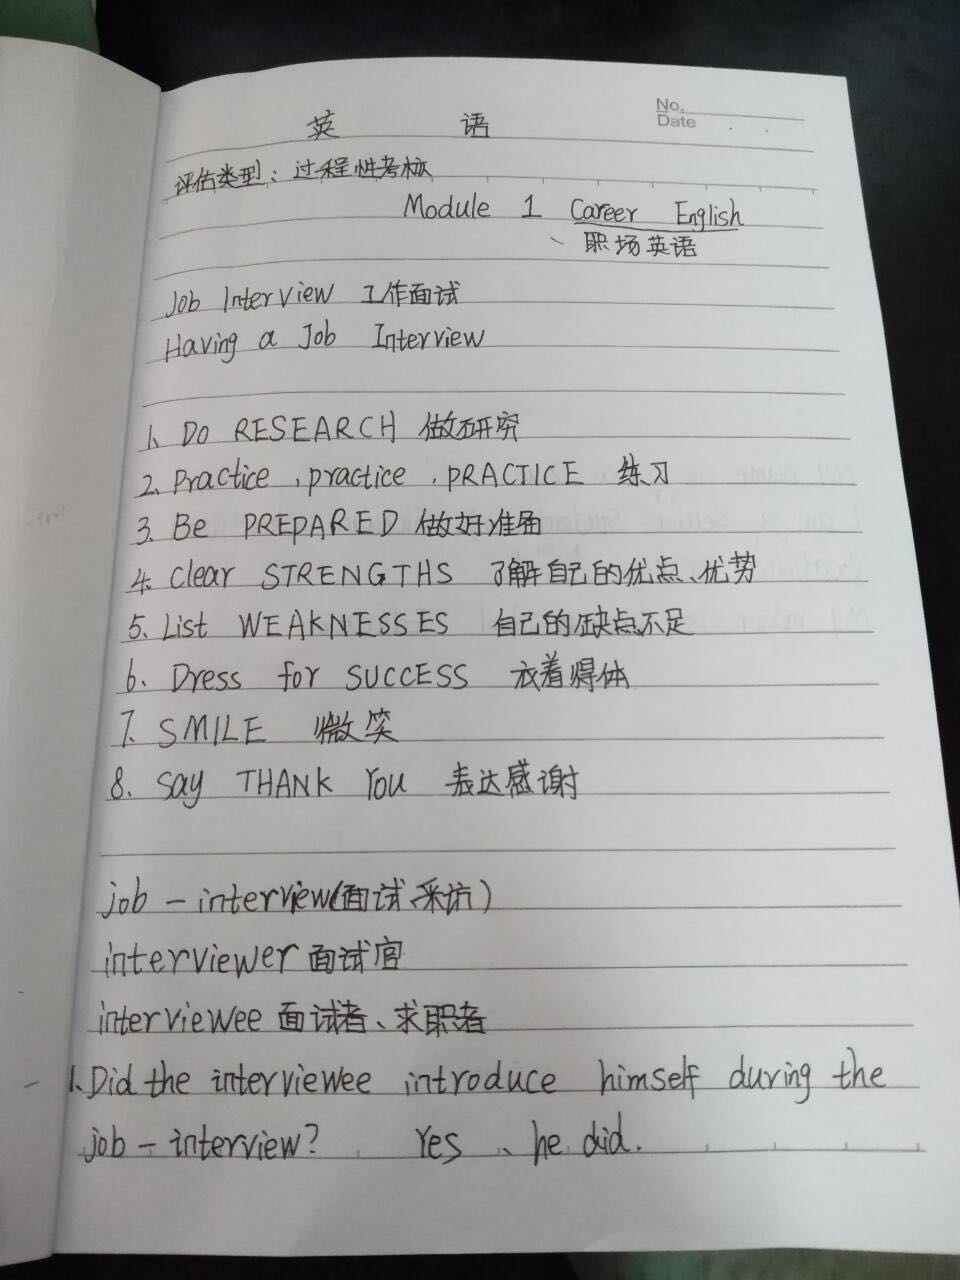 No.
Date
英 语
评估类型：过程性考核
Module 1 Career English
职场英语
Job Interview 工作面试
Having a Job Interview
1、Do RESEARCH 做研究
2、Practice , practice , PRACTICE 练习
3、Be PREPARED 做好准备
4、Clear STRENGTHS 了解自己的优点、优势
5、List WEAKNESSES 自己的缺点不足
6、Dress for SUCCESS 衣着得体
7、SMILE 微笑
8、Say THANK YOU 表达感谢
job - interview(面试、采访)
interviewer 面试官
interviewee 面试者、求职者
1、Did the interviewee introduce himself during the
job - interview? Yes、he did.